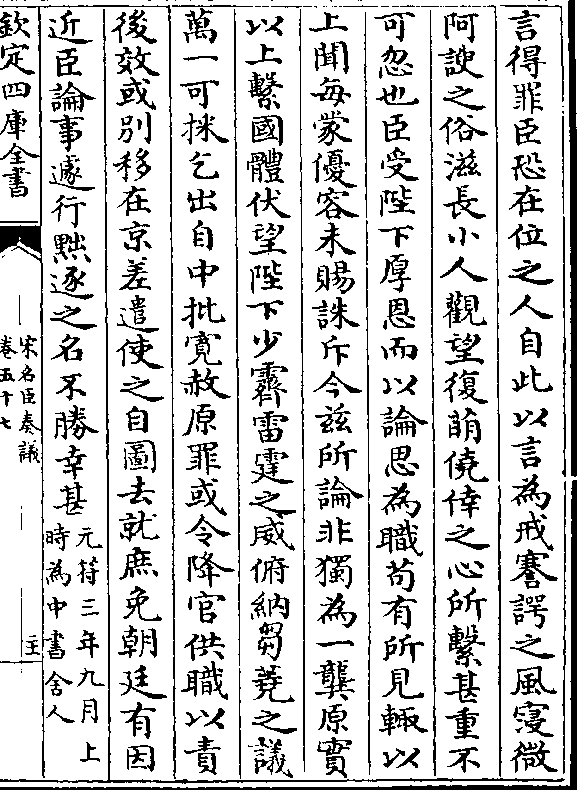 言得罪臣恐在位之人自此以言為戒謇諤之風寖微
阿諛之俗滋長小人觀望復萌僥倖之心所繫甚重不
可忽也臣受陛下厚恩而以論思為職苟有所見輙以
上聞每蒙優容未賜誅斥今兹所論非獨為一龔原實
以上繫國體伏望陛下少霽雷霆之威俯納芻蕘之議
萬一可採乞出自中批寛赦原罪或令降官供職以責
後效或别移在京差遣使之自圖去就庶免朝廷有因
近臣論事遽行黜逐之名不勝幸甚元符三年九月上
時為中書舍人
欽定四庫全書
宋名臣奏議
卷五十七